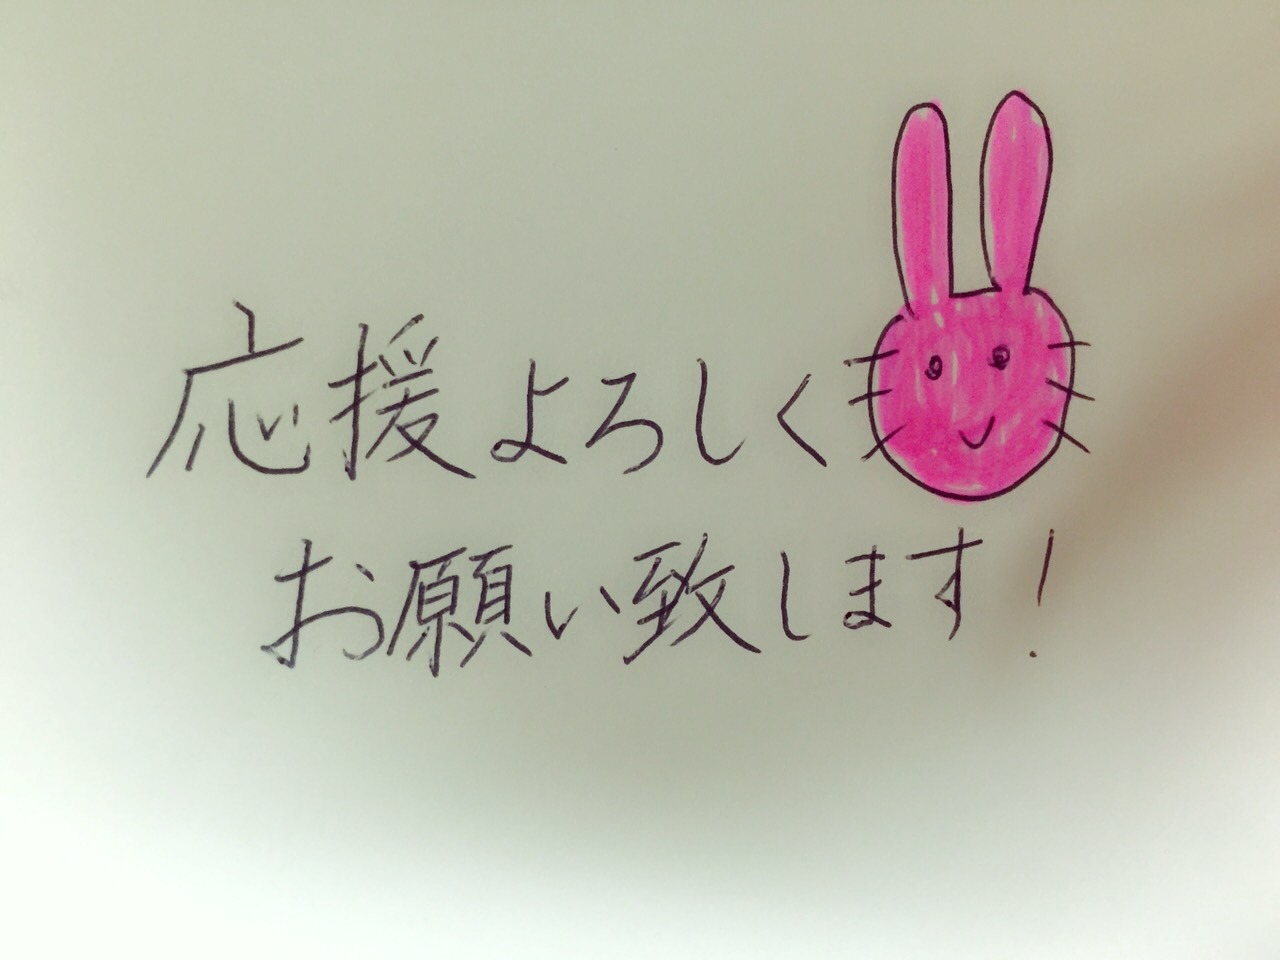 応援よろしく
お願い致します!